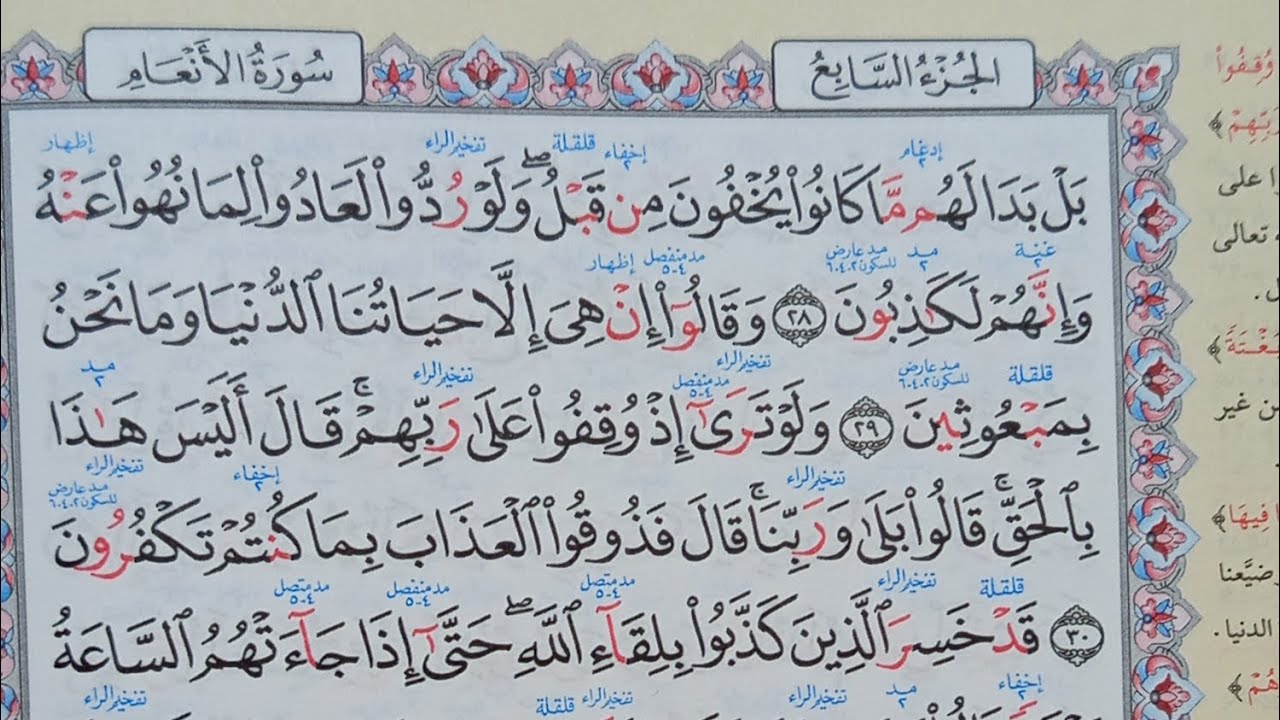 الجُزْءُ السَّابِعُ
سُورَةُ الأَنْعَامِ
إدغام ٢ إخفاء ٢ قلقلة تفخيم الراء إظهار
بَلْ بَدَا لَهُم مَّا كَانُوا۟ يُخْفُونَ مِن قَبْلُ ۖ وَلَوْ رُدُّوا۟ لَعَادُوا۟ لِمَا نُهُوا۟ عَنْهُ
غنة ٢ مد ٢ مد عارض للسكون ٢-٤-٦ مد منفصل ٤-٥ إظهار
وَإِنَّهُمْ لَكَٰذِبُونَ ٢٨ وَقَالُوٓا۟ إِنْ هِىَ إِلَّا حَيَاتُنَا ٱلدُّنْيَا وَمَا نَحْنُ
قلقلة مد عارض للسكون ٢-٤-٦ تفخيم الراء مد منفصل ٤-٥ تفخيم الراء مد ٢
بِمَبْعُوثِينَ ٢٩ وَلَوْ تَرَىٰٓ إِذْ وُقِفُوا۟ عَلَىٰ رَبِّهِمْ ۚ قَالَ أَلَيْسَ هَٰذَا
تفخيم الراء إخفاء ٢ تفخيم الراء مد عارض للسكون ٢-٤-٦
بِٱلْحَقِّ ۚ قَالُوا۟ بَلَىٰ وَرَبِّنَا ۚ قَالَ فَذُوقُوا۟ ٱلْعَذَابَ بِمَا كُنتُمْ تَكْفُرُونَ
قلقلة تفخيم الراء مد متصل ٤-٥ مد منفصل ٤-٥ مد متصل ٤-٥
٣٠ قَدْ خَسِرَ ٱلَّذِينَ كَذَّبُوا۟ بِلِقَآءِ ٱللَّهِ ۖ حَتَّىٰٓ إِذَا جَآءَتْهُمُ ٱلسَّاعَةُ
إخفاء ٢ مد ٢ تفخيم الراء تفخيم الراء قلقلة تفخيم الراء
وُقِفُوا۟
رَبِّهِمْ ﴾
على
تعالى
بَغْتَةً ﴾
ن غير
فِيهَا ﴾
ضيَّعنا
الدنيا.
هُمْ ﴾